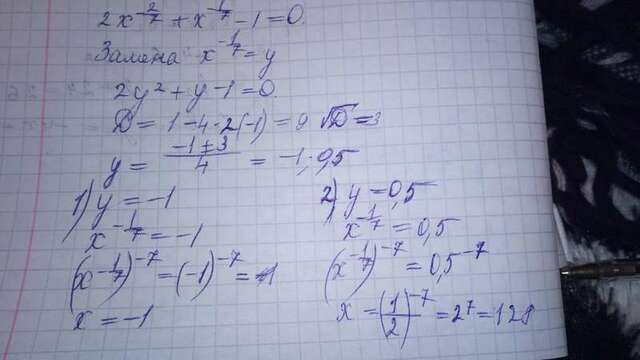 2x^{-2/7} + x^{-1/7} - 1 = 0
Замена x^{-1/7} = y
2y² + y - 1 = 0.
D = 1 - 4·2(-1) = 9 √D = 3
y = (-1±3)/4 = -1; 0,5
1) y = -1
x^{-1/7} = -1
(x^{-1/7})^{-7} = (-1)^{-7} = -1
x = -1
2) y = 0,5
x^{-1/7} = 0,5
(x^{-1/7})^{-7} = 0,5^{-7}
x = (1/2)^{-7} = 2^7 = 128